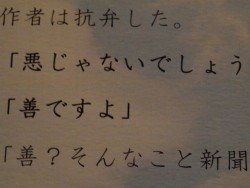 作者は抗弁した。
「悪じゃないでしょう
「善ですよ」
「善？そんなこと新聞